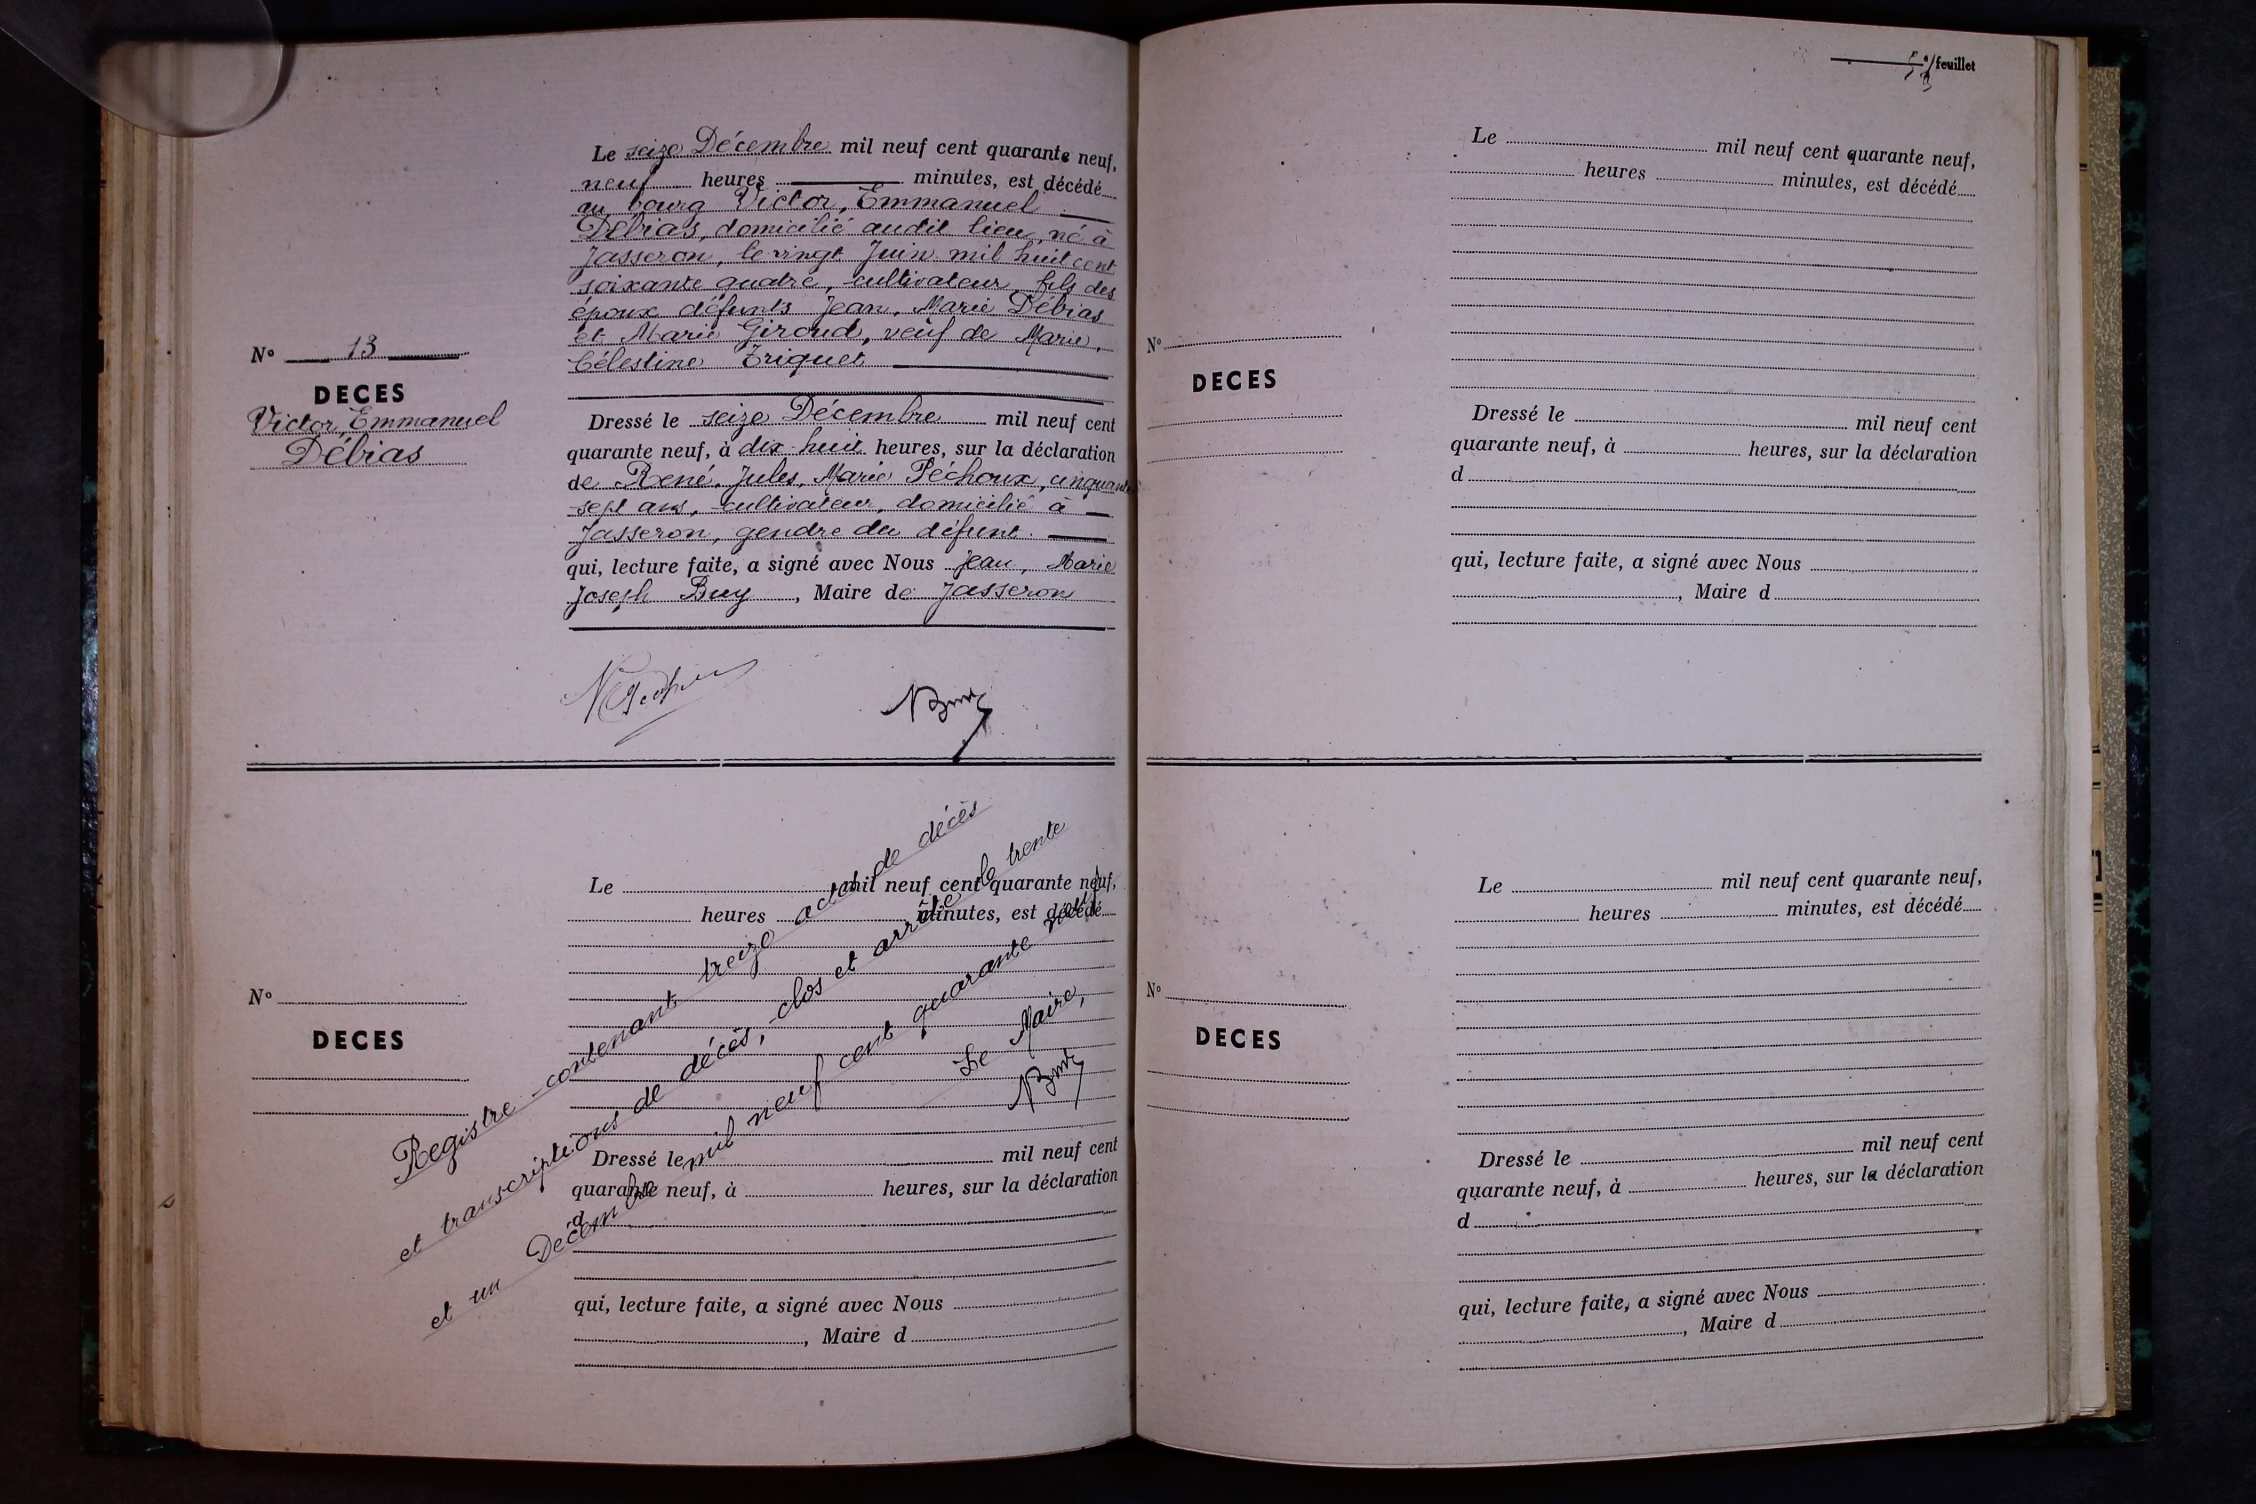 N° 13
DECES
Victor, Emmanuel
Débias
Le seize Décembre mil neuf cent quarante neuf,
neuf heures minutes, est décédé
au bourg Victor, Emmanuel
Débias, domicilié audit lieu, né à
Jasseron, le vingt Juin mil huit cent
soixante quatre, cultivateur, fils des
époux défunts Jean, Marie Débias
et Marie Giroud, veuf de Marie,
Célestine Triquet
Dressé le seize Décembre mil neuf cent
quarante neuf, à dix huit heures, sur la déclaration
de René, Jules, Marie Péchoux, cinquante
sept ans, cultivateur, domicilié à
Jasseron, gendre du défunt.
qui, lecture faite, a signé avec Nous Jean, Marie
Joseph Buy, Maire de Jasseron
N°
DECES
Le mil neuf cent quarante neuf,
heures minutes, est décédé
Dressé le mil neuf cent
quarante neuf, à heures, sur la déclaration
d
qui, lecture faite, a signé avec Nous
, Maire d
Registre contenant treize actes de décès
et transcriptions de décès, clos et arrêté le trente
et un Décembre mil neuf cent quarante neuf
Le Maire,
feuillet
N°
DECES
Le mil neuf cent quarante neuf,
heures minutes, est décédé
Dressé le mil neuf cent
quarante neuf, à heures, sur la déclaration
d
qui, lecture faite, a signé avec Nous
, Maire d
N°
DECES
Le mil neuf cent quarante neuf,
heures minutes, est décédé
Dressé le mil neuf cent
quarante neuf, à heures, sur la déclaration
d
qui, lecture faite, a signé avec Nous
, Maire d